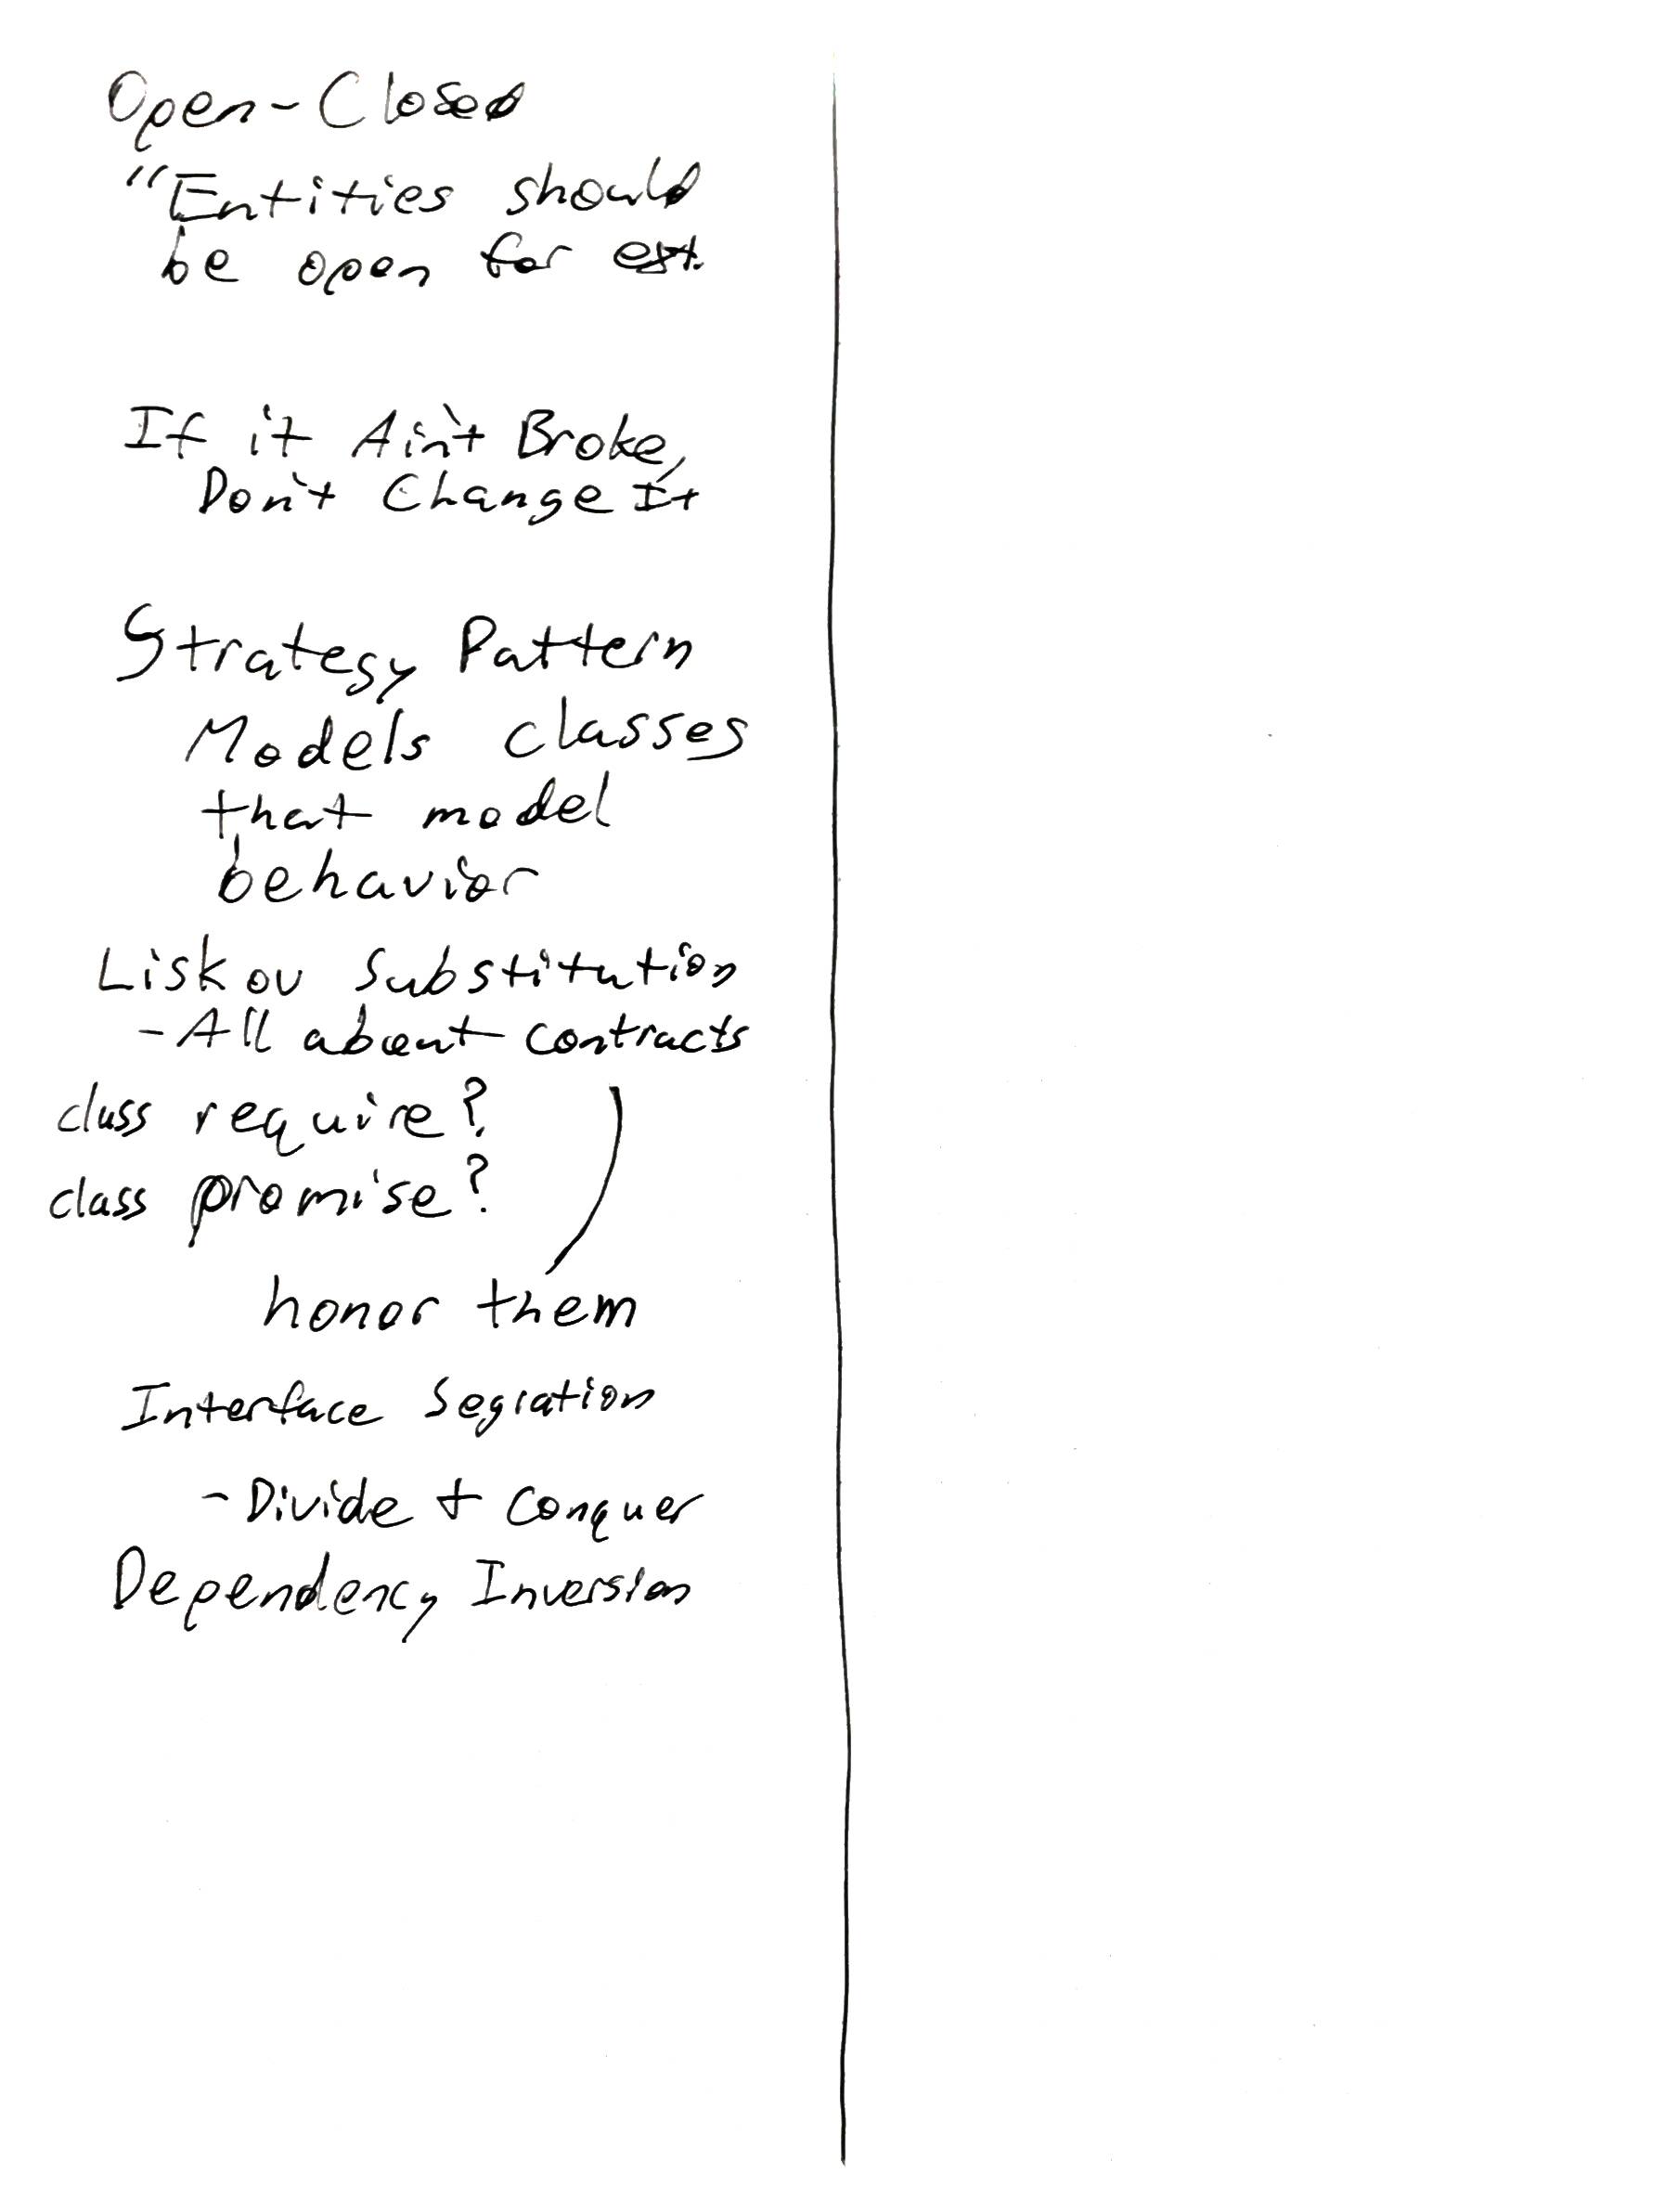 Open-Closed
"Entities should
be open for ext.
If it Ain't Broke,
Don't Change It
Strategy Pattern
Models classes
that model
behavior
Liskov Substitution
- All about contracts
class require?
class promise?
honor them
Interface Segration
- Divide + Conquer
Dependency Inversion